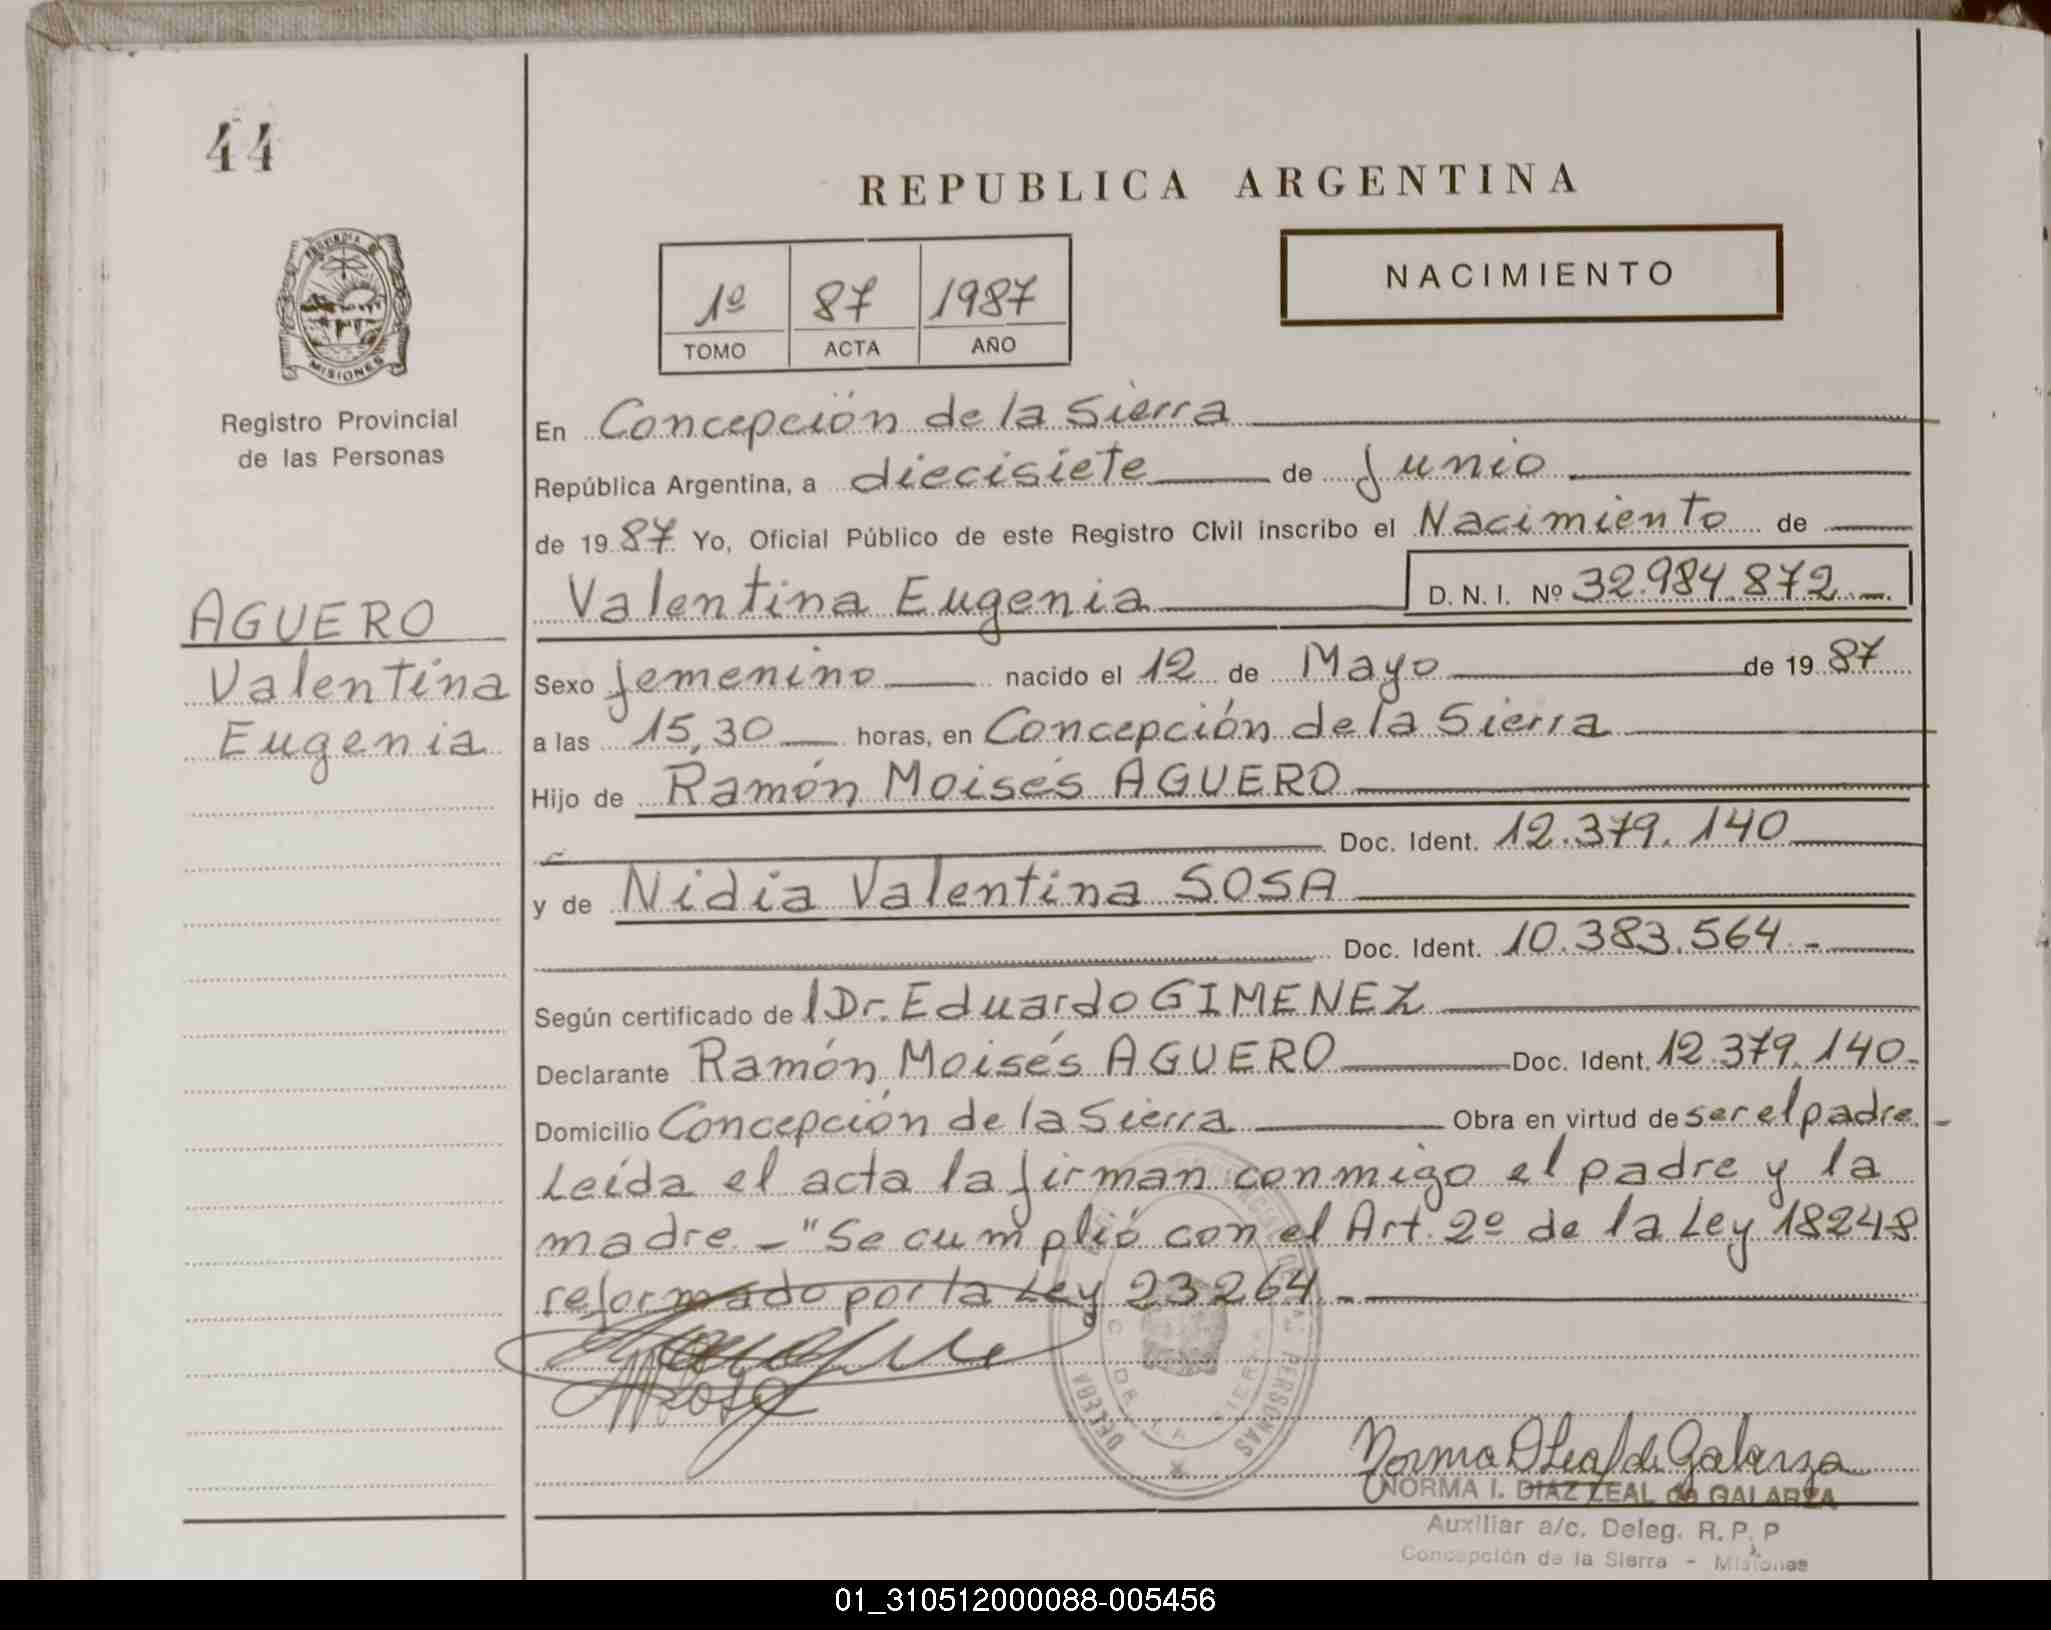 44
REPUBLICA ARGENTINA
PROVINCIA DE
MISIONES
1º 87 1987
TOMO ACTA AÑO
NACIMIENTO
Registro Provincial
de las Personas
AGUERO
Valentina
Eugenia
En Concepción de la Sierra
República Argentina, a diecisiete de Junio
de 1987 Yo, Oficial Público de este Registro Civil inscribo el Nacimiento de
Valentina Eugenia D. N. I. Nº 32.984.872
Sexo femenino nacido el 12 de Mayo de 1987
a las 15,30 horas, en Concepción de la Sierra
Hijo de Ramón Moisés AGUERO
Doc. Ident. 12.379.140
y de Nidia Valentina SOSA
Doc. Ident. 10.383.564.-
Según certificado del Dr. Eduardo GIMENEZ
Declarante Ramón Moisés AGUERO Doc. Ident. 12.379.140-
Domicilio Concepción de la Sierra Obra en virtud de ser el padre.-
Leída el acta la firman conmigo el padre y la
madre.- "Se cumplió con el Art. 2º de la Ley 18248
reformado por la Ley 23264.-
DE LA SIERRA
PERSONAS
Norma D Leal de Galarza
NORMA I. DIAZ LEAL de GALARZA
Auxiliar a/c. Deleg. R. P. P
Concepción de la Sierra - Misiones
01_310512000088-005456